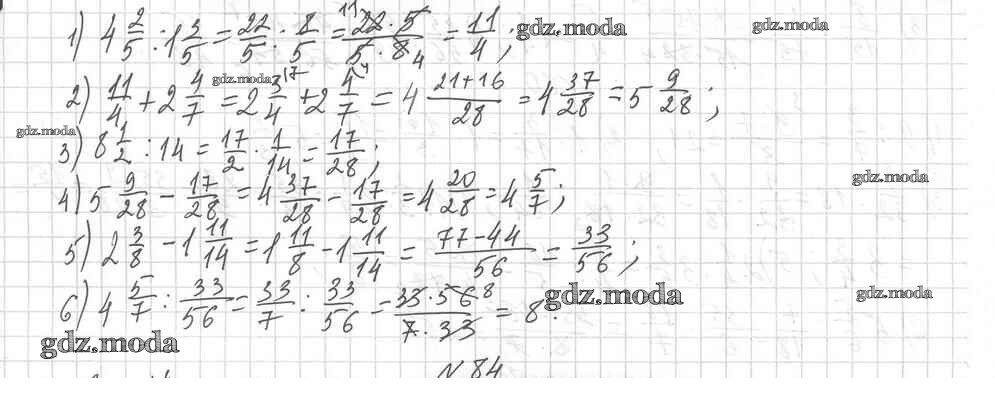 1) 4 2/5 : 1 3/5 = 22/5 : 8/5 = 22 · 5 / 5 · 8 = 11/4 ; 11 4 gdz.moda gdz.moda
gdz.moda
2) 11/4 + 2 4/7 = 2 3/4 + 2 4/7 = 4 21+16/28 = 4 37/28 = 5 9/28 ;
gdz.moda
3) 8 1/2 : 14 = 17/2 · 1/14 = 17/28 ;
gdz.moda
4) 5 9/28 - 17/28 = 4 37/28 - 17/28 = 4 20/28 = 4 5/7 ;
5) 2 3/8 - 1 11/14 = 1 11/8 - 1 11/14 = 77-44/56 = 33/56 ;
6) 4 5/7 : 33/56 = 33/7 : 33/56 = 33 · 56 8 / 7 · 33 = 8.
gdz.moda gdz.moda
gdz.moda
N 84